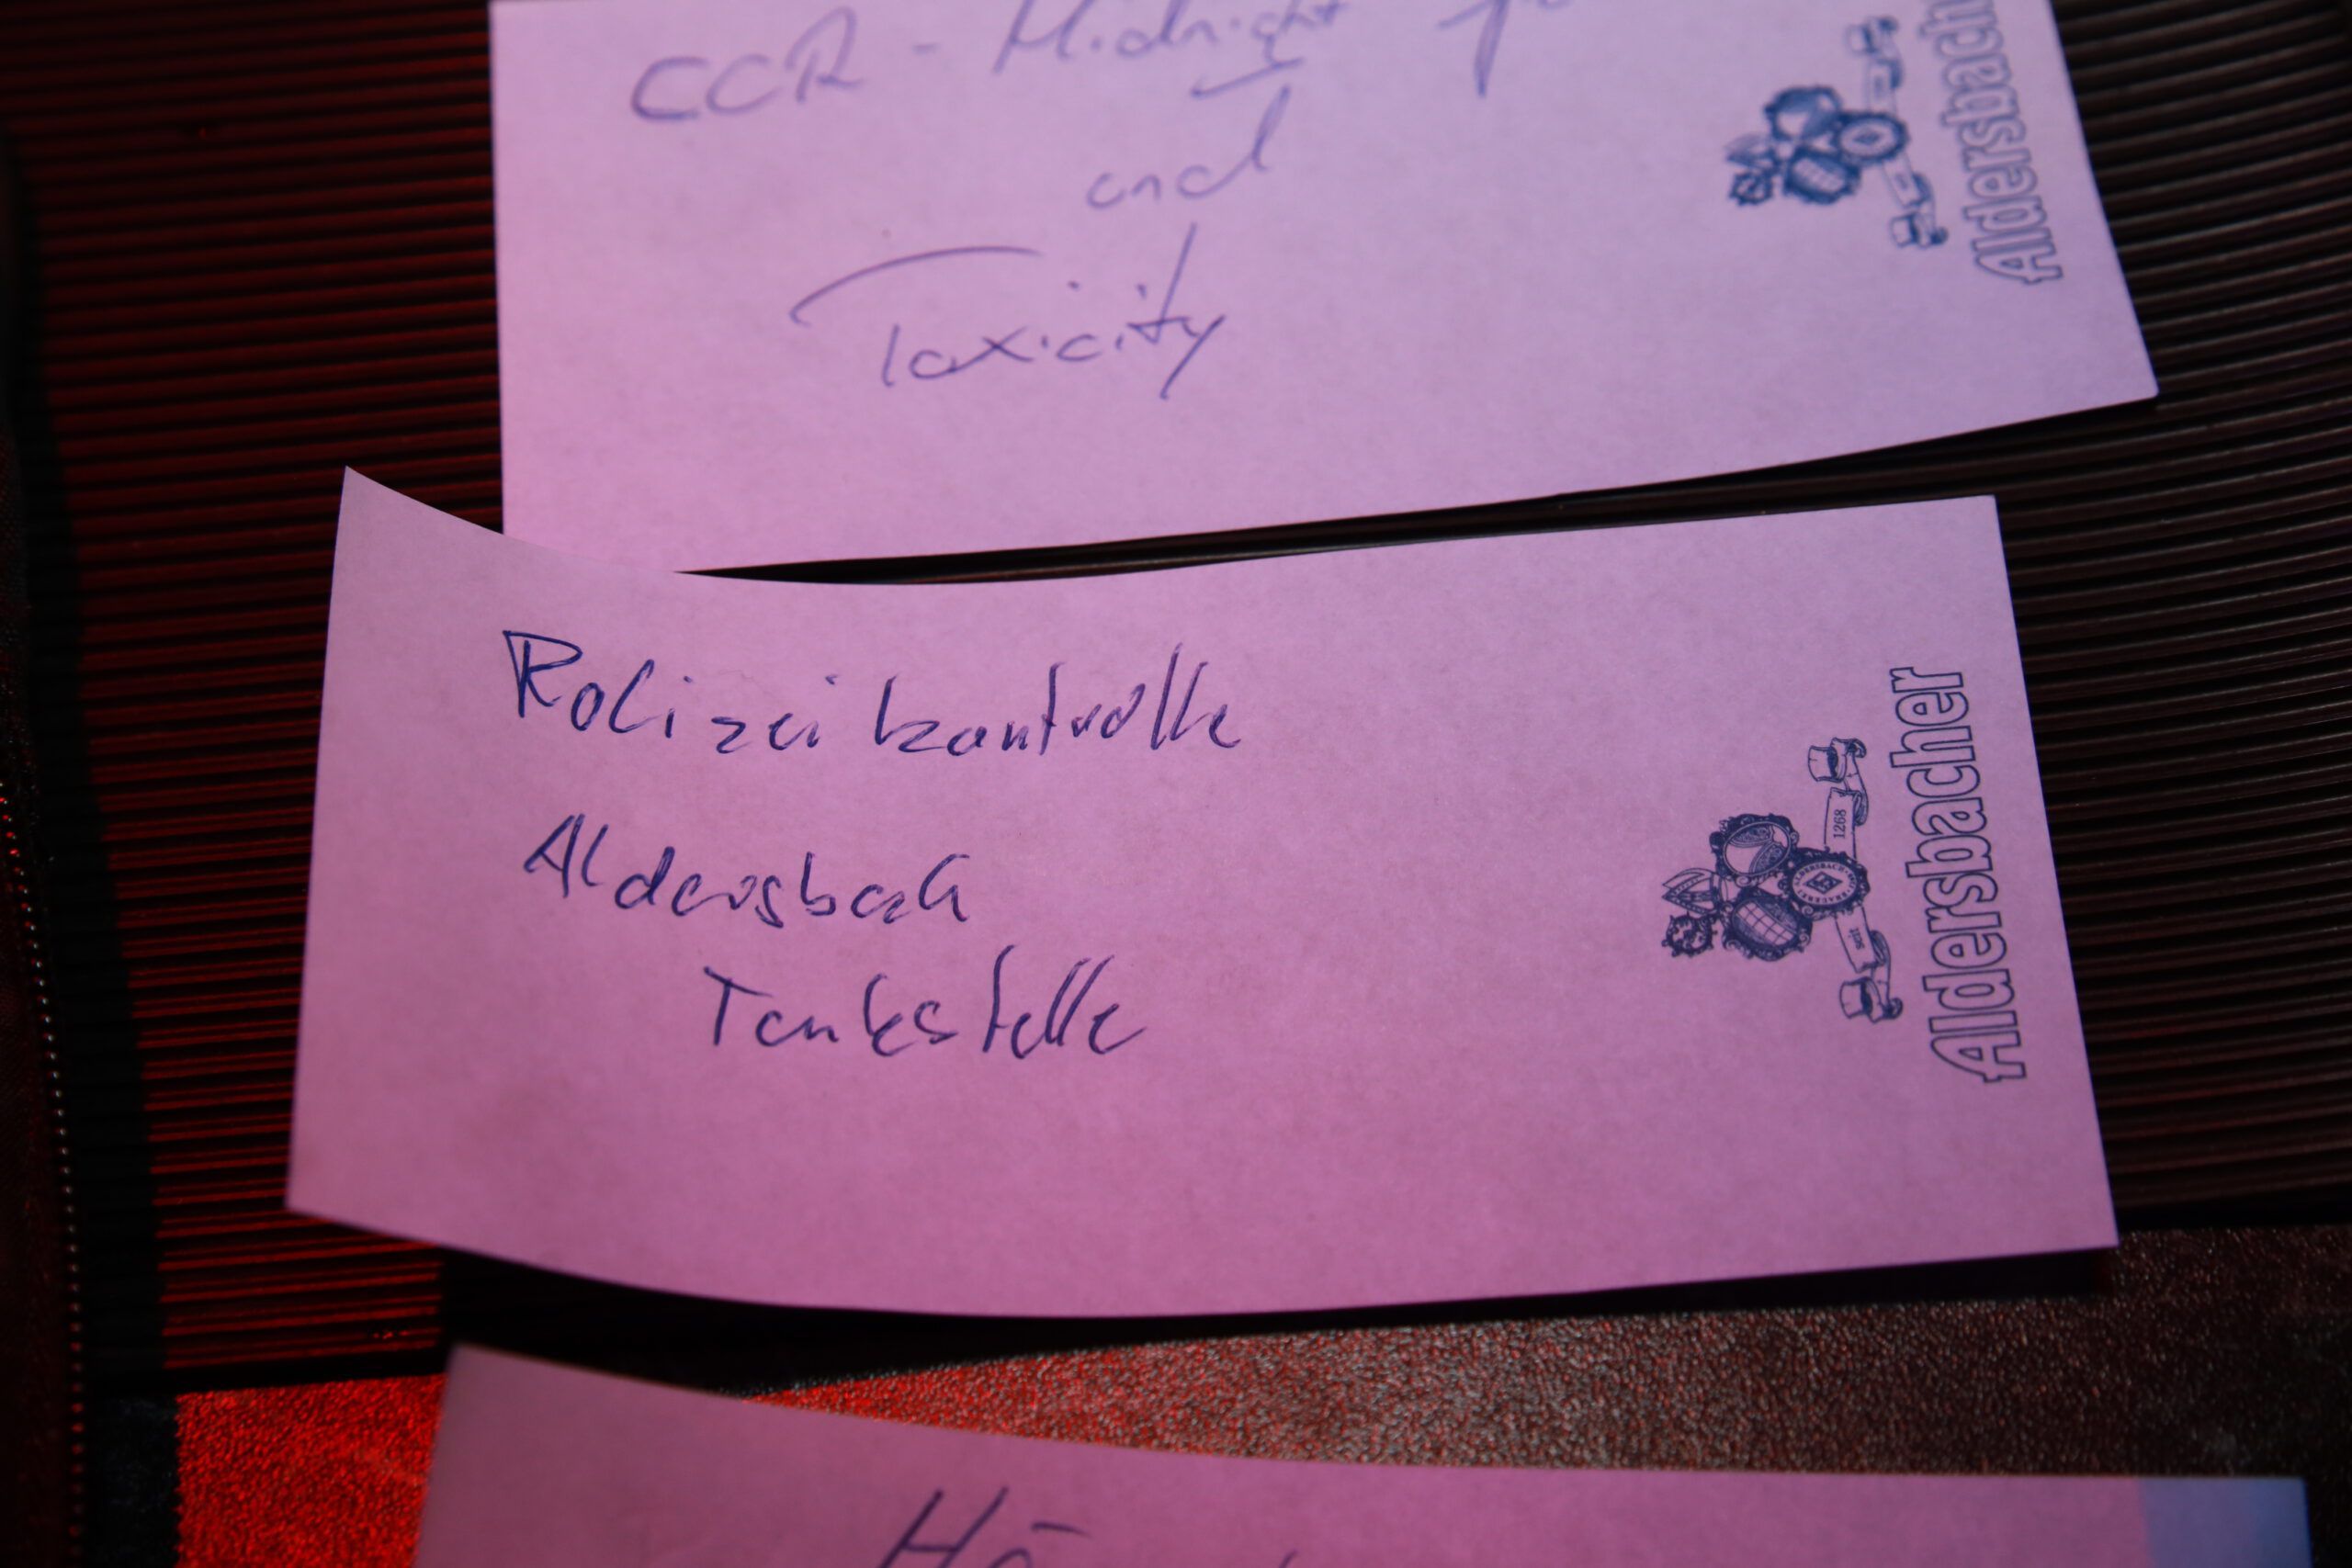 CCR - Midnight
and
Toxicity
Aldersbach
Polizeikontrolle
Aldersbach
Tankstelle
1268
seit
Aldersbacher